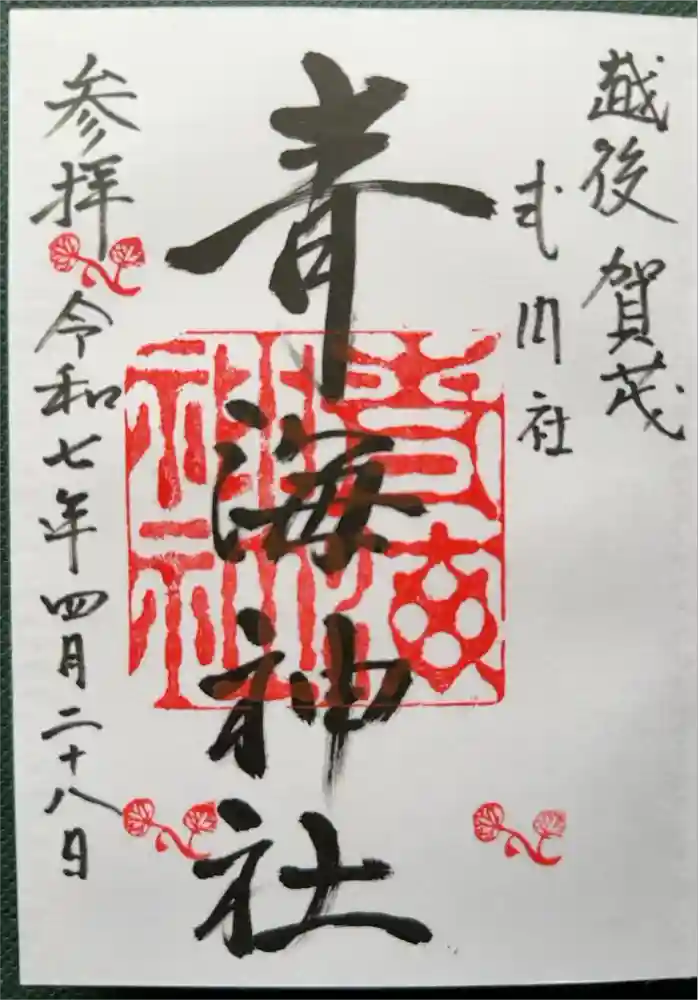 越後 賀茂
式内社
青海神社
青海神社
参拝
令和七年四月二十八日